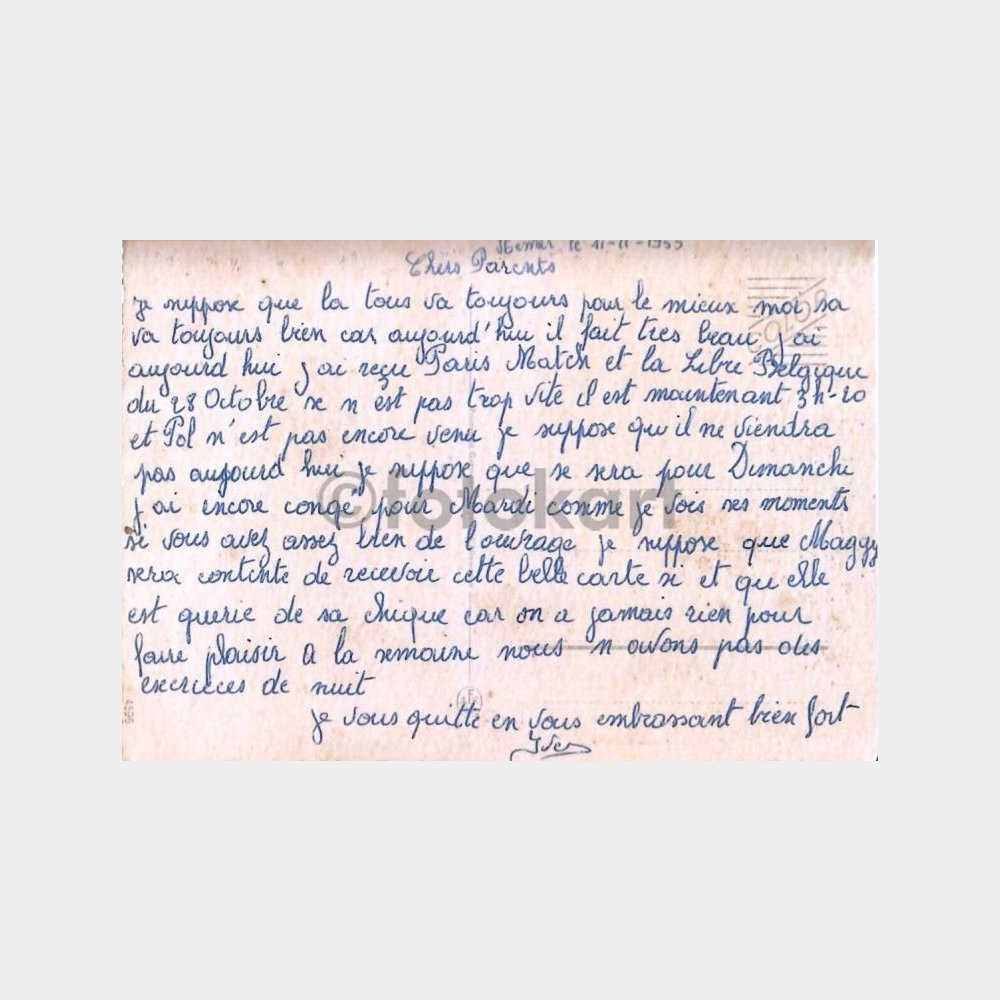 le 11-11-1955
Chers Parents
je suppose que la tous va toujours pour le mieux moi sa
va toujours bien car aujourd'hui il fait tres beau j'ai
aujourd hui j ai reçu Paris Match et la Libre Belgique
du 28 Octobre se n est pas trop vite il est maintenant 3h-20
et Pol n'est pas encore venu je suppose qu'il ne viendra
pas aujourd hui je suppose que se sera pour Dimanche
j'ai encore congé pour Mardi comme je vois ses moments
si vous avez assez bien de l'ouvrage je suppose que Maggy
sera contente de recevoir cette belle carte si et qu elle
est querie de sa chique car on a jamais rien pour
faire plaisir a la semaine nous n avons pas des
exercices de nuit
je vous quitte en vous embrassant bien fort
Yves
©fotokart